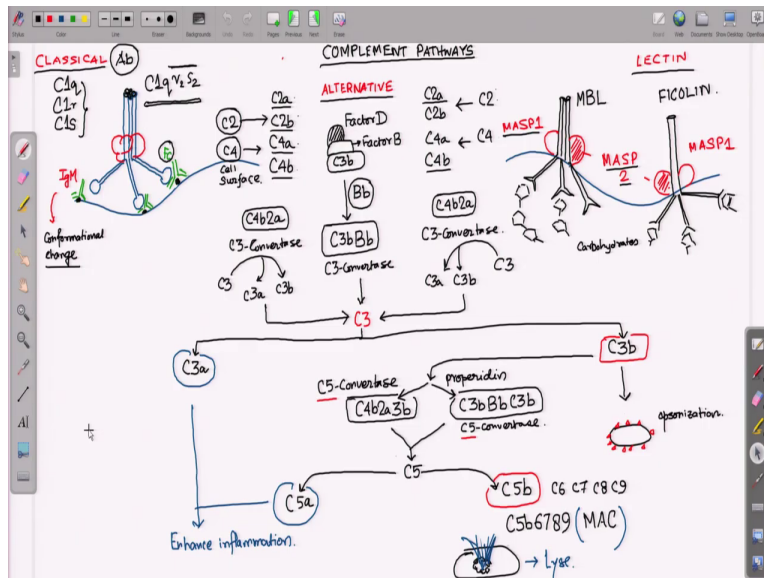 Stylus
Color
Line
Eraser
Backgrounds
Undo
Redo
Pages
Previous
Next
Erase
Board
Web
Documents
Show Desktop
OpenBoard
COMPLEMENT PATHWAYS
CLASSICAL
Ab
C1q
C1r
C1s
C1q r2 s2
IgM
Conformational
change
Fc
Cell
surface
C2
C4
C2a
C2b
C4a
C4b
C4b2a
C3-Convertase
C3
C3a
C3b
ALTERNATIVE
Factor D
Factor B
C3b
Bb
C3bBb
C3-Convertase
C2a
C2b
C2
C4a
C4b
C4
C4b2a
C3-Convertase
C3
C3a
C3b
LECTIN
MBL
FICOLIN.
MASP1
MASP
2
MASP1
Carbohydrates
C3
C3a
C3b
C5-Convertase
properidin
C4b2a3b
C3bBbC3b
C5-convertase.
opsonization.
C5
C5a
C5b
C6 C7 C8 C9
C5b6789 (MAC)
Enhance inflammation.
Lyse.